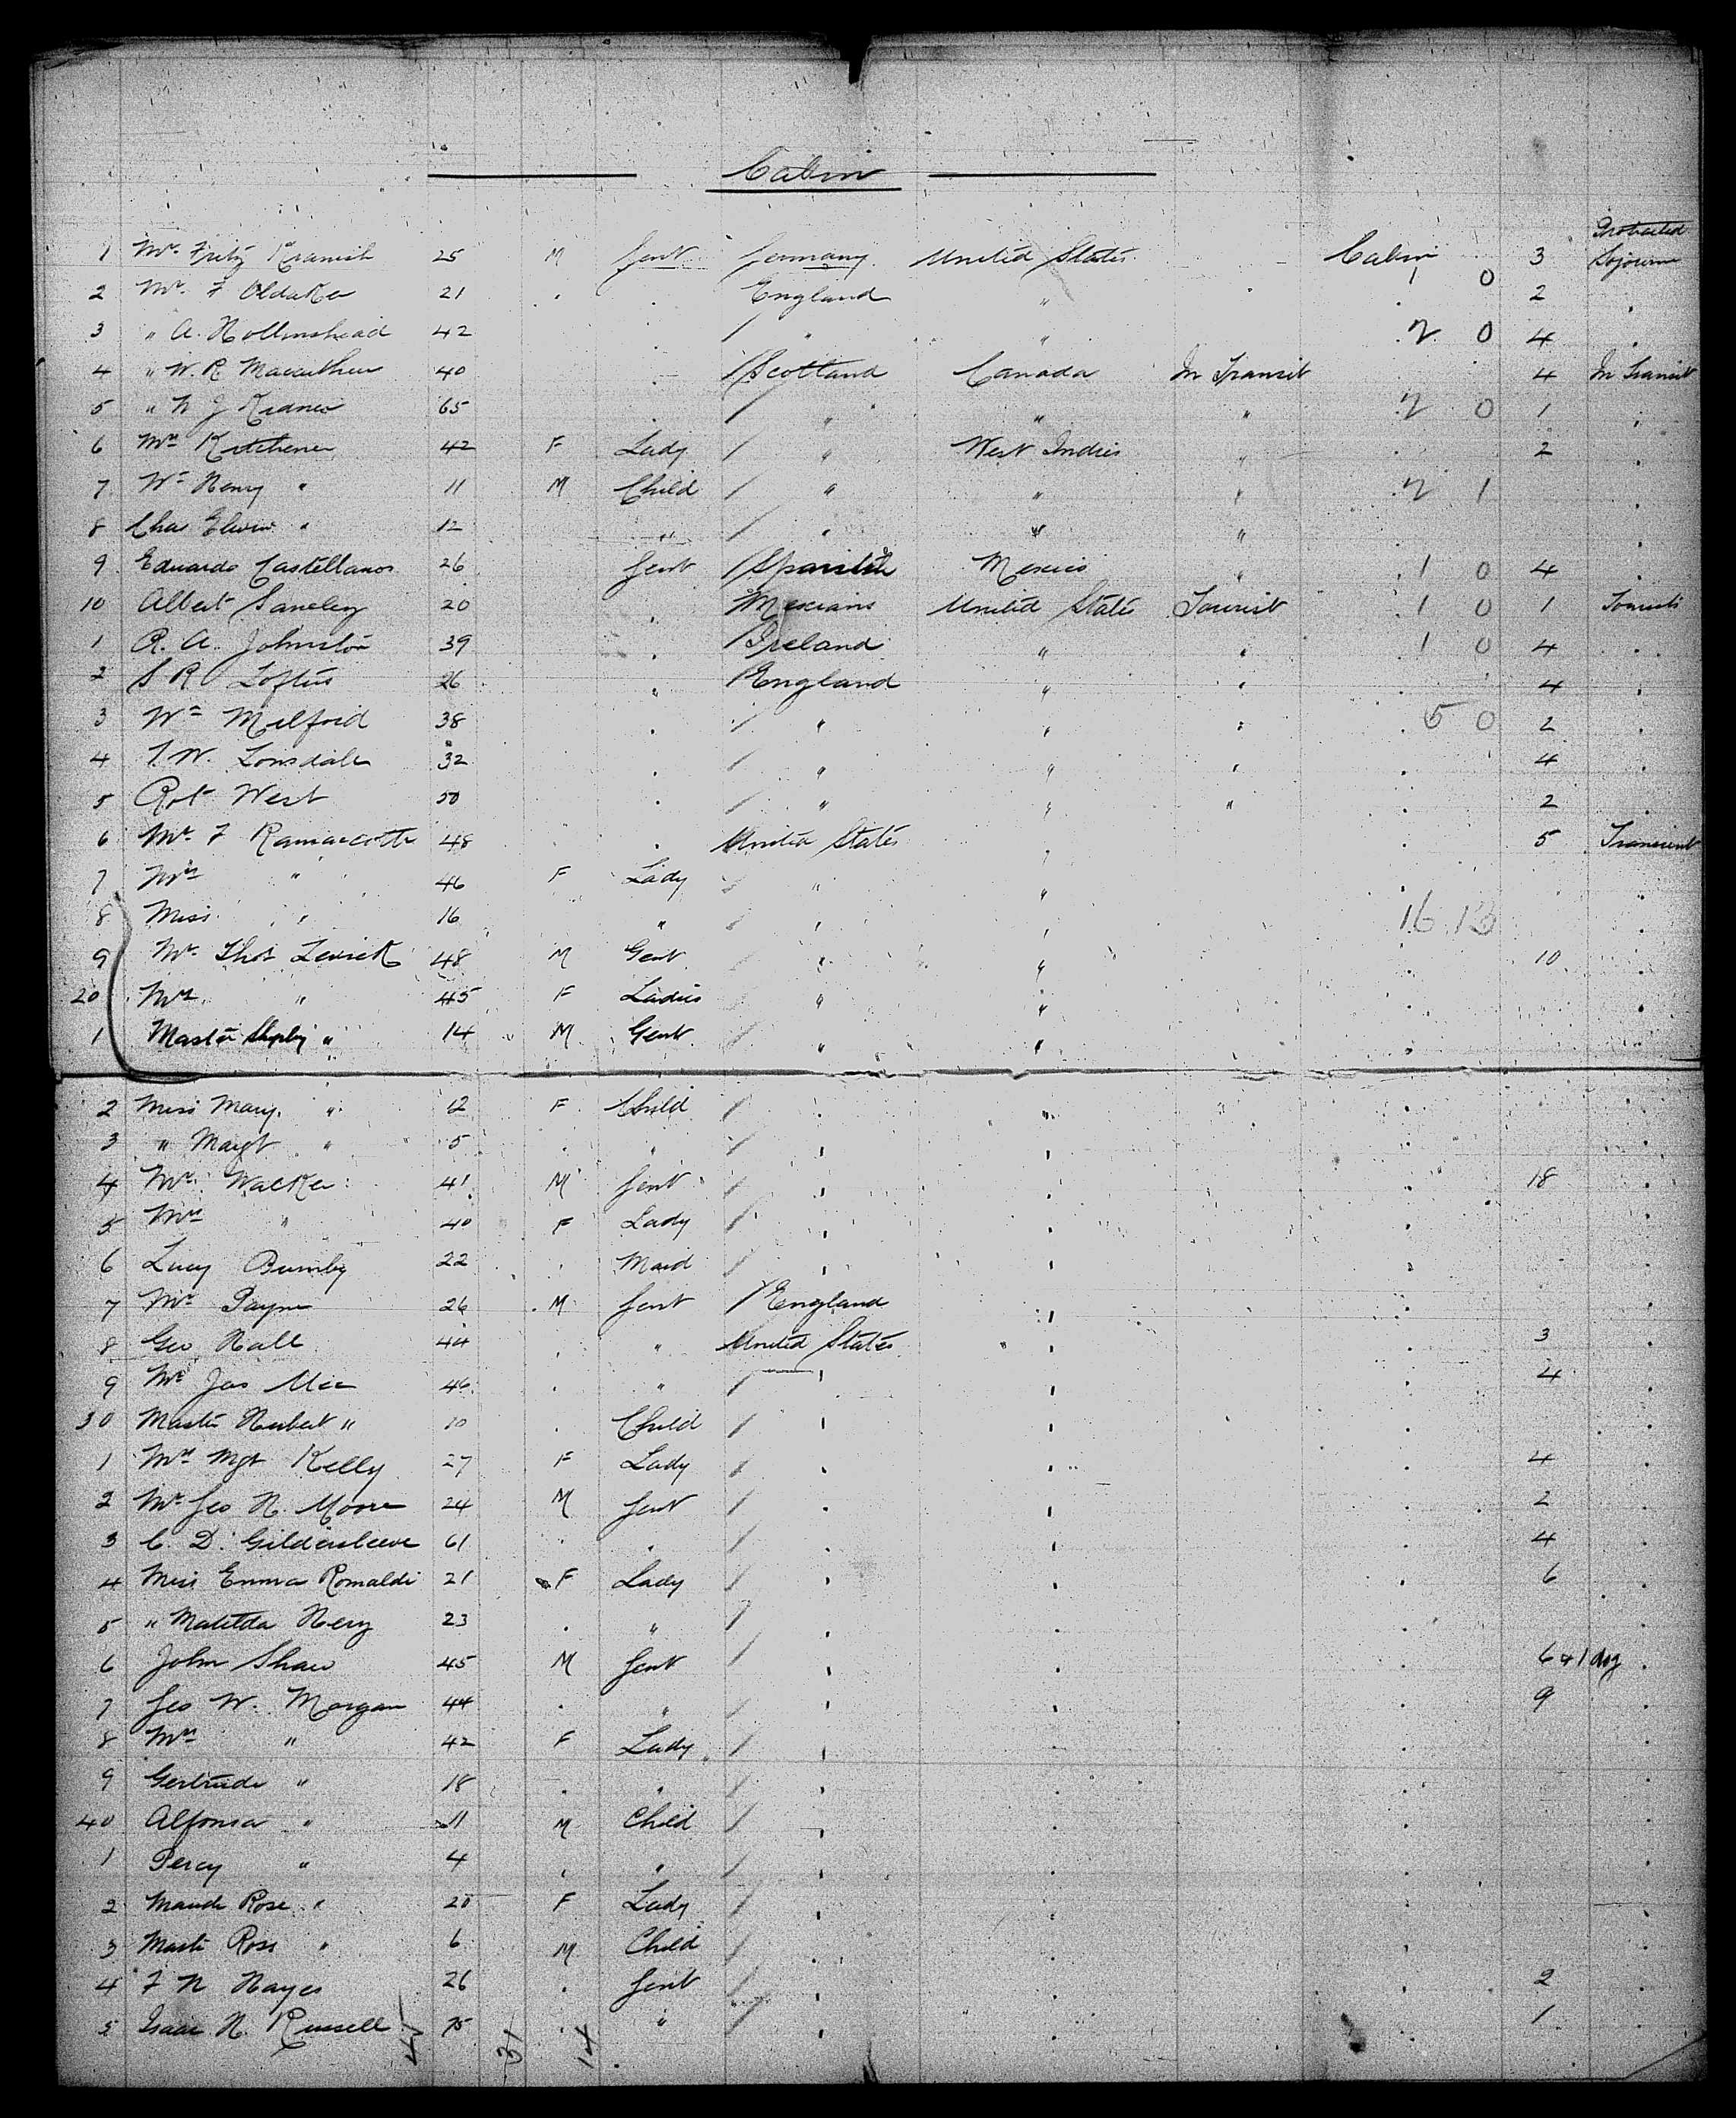 Cabin
Protracted
1 Mr. Fritz Kramish 25 M Gent Germany United States Cabin 3 Sojourn
1 0
2 Mr. F Oldaker 21 . . England " . . 2 .
3 " A. Hollinshead 42 / " " . 2 0 4 .
4 " W. R. Macarthur 40 . / Scotland Canada In Transit 4 In Transit
5 " W J Kidner 65 / " " " . 2 0 1 .
6 Mrs Kitchener 42 F Lady / " West Indies " 2 .
7 Wm Henry " 11 M Child / " " " . 2 1 .
8 Chas Elwin " 12 " / " " " .
9 Eduardo Castellanos 26 Gent / Spanish Mexico " . 1 0 4 .
10 Albert 20 . Mexicans United States Tourist 1 0 1 Tourists
1 R. A. Johnston 39 . / Ireland " " 1 0 4 .
2 S R Loftus 26 " / England " " . 4 .
3 Wm Milford 38 . / " " " 5 0 2 .
4 T. W. Lonsdale 32 . / " " " . 4 .
5 Robt West 50 . / " " " . 2 .
6 Mr. F 48 . . United States " . 5 Transient
7 Mrs " 46 F Lady / " " . .
8 Miss " 16 " / " " 16 13 .
9 Mr Thos 48 M Gent / " " . 10 .
20 Mrs " 45 F Ladies / " " . .
1 Master " 14 M Gent / " " . .
2 Miss Mary " 12 F Child / " " . .
3 " Margt " 5 . " / " " . .
4 Mr. Walker 41 M Gent / " " . 18 .
5 Mrs " 40 F Lady / " " . .
6 Lucy Burnby 22 . Maid / " " . .
7 Mr Payne 26 M Gent / England " . .
8 Geo Hall 44 . " United States " . 3 .
9 Mr Jas 46 . " / " " . 4 .
30 Master Herbert " 10 . Child / " " . .
1 Mrs Mgt Kelly 27 F Lady / " " . 4 .
2 Mr Geo H. Moore 24 M Gent / " " . 2 .
3 C. D. Gildersleeve 61 . " / " " . 4 .
4 Miss Emma Romaldi 21 F Lady / " " . 6 .
5 " Matilda Hery 23 . " / " " . .
6 John Shaw 45 M Gent / " " . 6 & 1 dog .
7 Geo W. Morgan 44 . " / " " . 9 .
8 Mrs " 42 F Lady / " " . .
9 Gertrude " 18 . " / " " . .
40 Alfonso " 11 M Child / " " . .
1 Percy " 4 . " / " " . .
2 Maude Rose " 20 F Lady / " " . .
3 Mastr Ross " 6 M Child / " " . .
4 F H Hayes 26 . Gent / " " . 2 .
5 Isaac H. Russell 75 . " / " " . 1 .
45 31 14